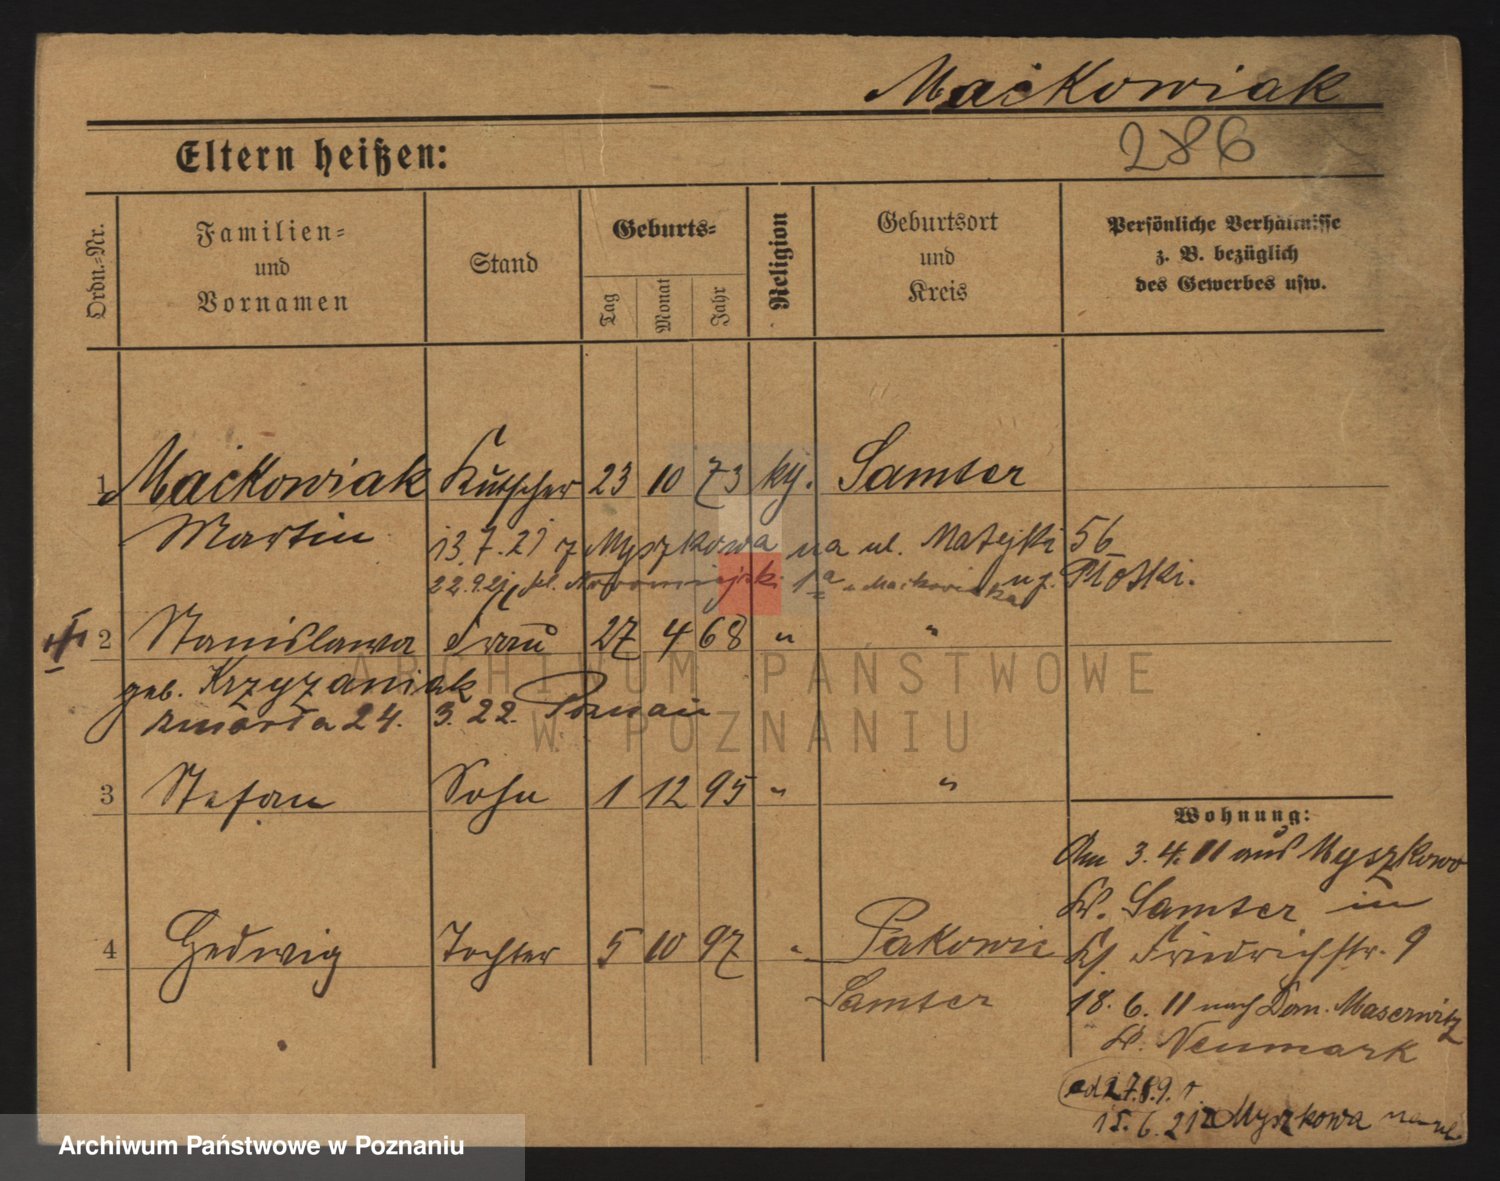 Maćkowiak
286
Eltern heißen:
Ordn.-Nr.
Familien-
und
Vornamen
Stand
Geburts-
Tag
Monat
Jahr
Religion
Geburtsort
und
Kreis
Persönliche Verhältnisse
z. B. bezüglich
des Gewerbes usw.
1 Maćkowiak Kutscher 23 10 73 Samter
Martin
13.7.21 z Myszkowa na ul. Matejki 56
22.9.21 1a u Maćkowiaka u p. Płotki.
2 Stanislawa Frau 27 4 68 " "
geb. Krzyżaniak
zmarła 24. 3. 22. Poznań
3 Stefan Sohn 1 12 95 " "
4 Hedwig Tochter 5 10 97 "
Samter
Wohnung:
Am 3. 4. 11 aus Myszkowo
Kr. Samter in
Friedrichstr. 9
18. 6. 11 nach Dom.
Kr. Neumark
15. 6. 21 z Myszkowa na ul
ARCHIWUM PAŃSTWOWE
W POZNANIU
Archiwum Państwowe w Poznaniu